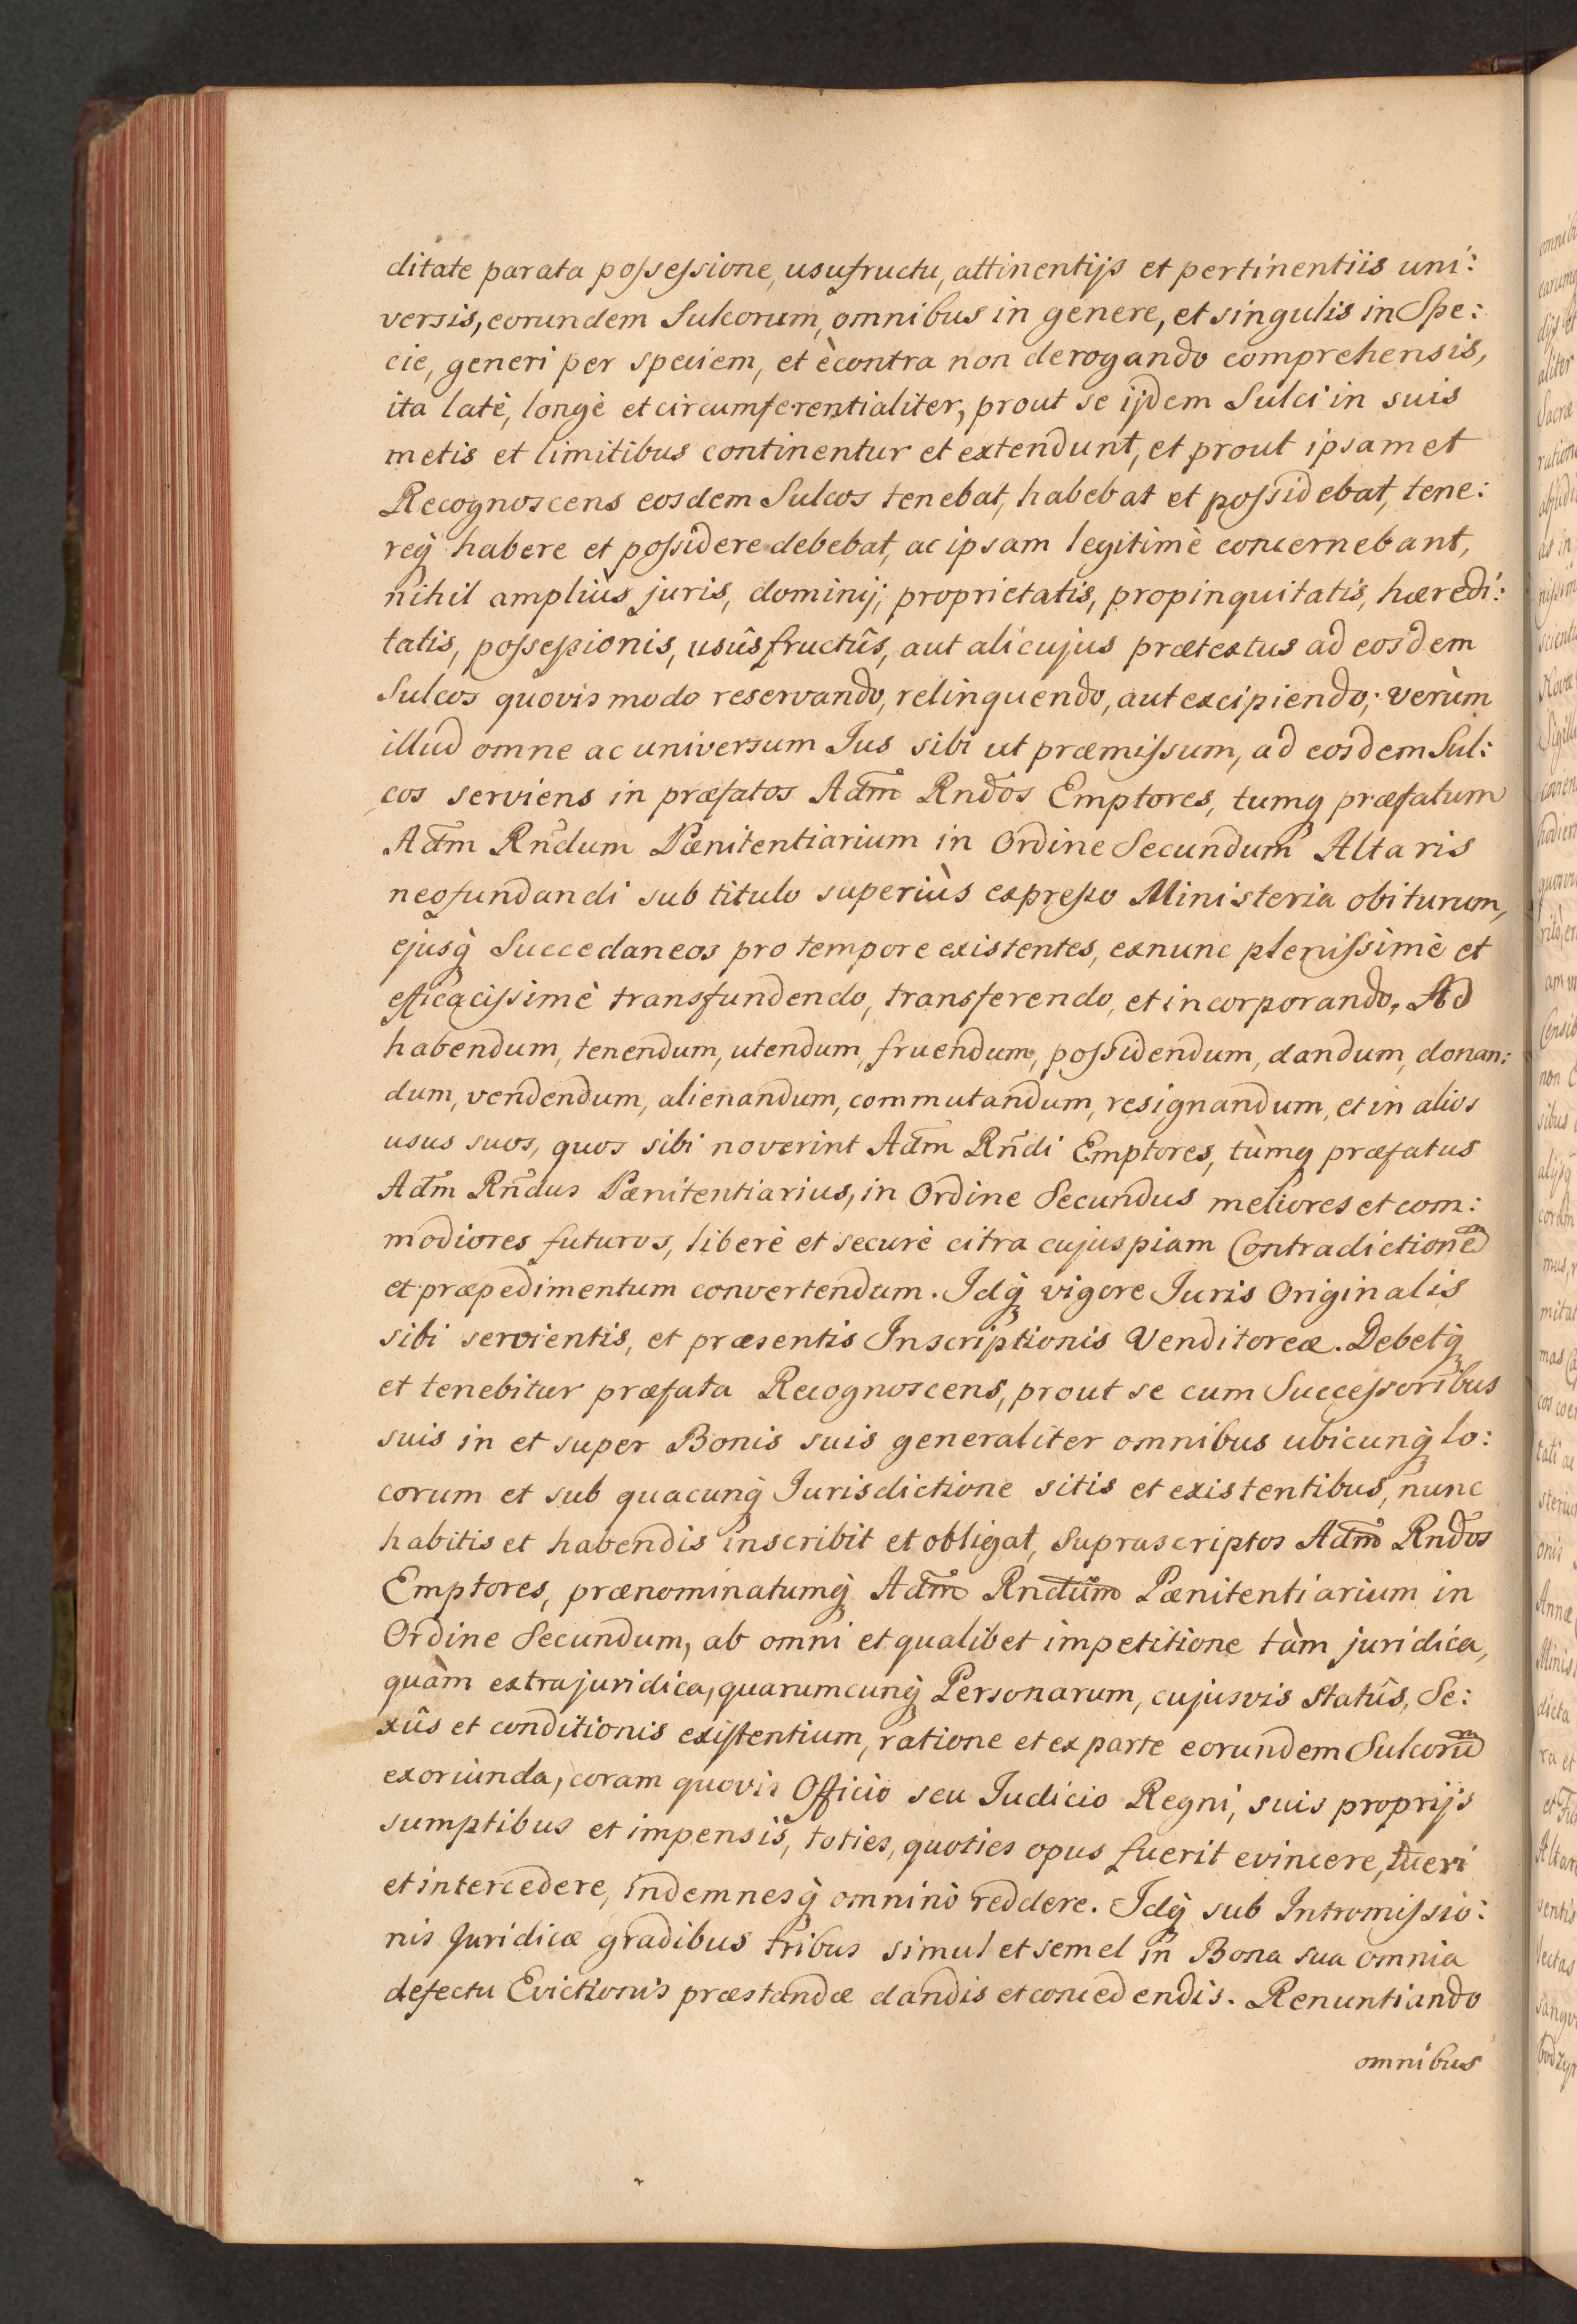 ditate parata poſseſsione, usufructu, attinentijs et pertinentiis uni:
versis, eorundem Sulcorum, omnibus in genere, et singulis in Spe:
cie, generi per speciem, et ècontra non derogando comprehensis,
ita latè, longè et circumferentialiter, prout se ijdem Sulci in suis
metis et limitibus continentur et extendunt, et prout ipsamet
Recognoscens eosdem Sulcos tenebat, habebat et poſsidebat, tene:
req́ habere et poſsidere debebat, ac ipsam legitimè concernebant,
nihil ampliùs juris, dominij, proprietatis, propinquitatis, hæredi:
tatis, poſseſsionis, usûsfructûs, aut alicujus prætextus ad eosdem
Sulcos quovis modo reservando, relinquendo, aut excipiendo; verùm
illud omne ac universum Jus sibi ut præmiſsum, ad eosdem Sul:
cos serviens in præfatos Adm̃ Rnd̃os Emptores, tumq præfatum
Adm̃ Rñdum Pænitentiarium in Ordine Secundum Altaris
neofundandi sub titulo superiùs expreſso Ministeria obiturum,
ejusq́ Succedaneos pro tempore existentes, exnunc pleniſsimè et
efficaciſsimè transfundendo, transferendo, et incorporando. Ad
habendum, tenendum, utendum, fruendum, poſsidendum, dandum, donan:
dum, vendendum, alienandum, commutandum, resignandum, et in alios
usus suos, quos sibi noverint Adm̃ Rñdi Emptores, tùmq præfatus
Adm̃ Rñdus Pænitentiarius, in Ordine Secundus meliores et com:
modiores futuros, liberè et securè citra cujuspiam Contradictionẽ
et præpedimentum convertendum. Idq́ vigore Juris Originalis
sibi servientis, et præsentis Inscriptionis Venditoreæ. Debetq́
et tenebitur præfata Recognoscens, prout se cum Succeſsoribus
suis in et super Bonis suis generaliter omnibus ubicunq́ lo:
corum et sub quacunq́ Jurisdictione sitis et existentibus, nunc
habitis et habendis inscribit et obligat, suprascriptos Adm̃ Rnd̃os
Emptores, prænominatumq́ Adm̃ Rndũm Pænitentiarium in
Ordine Secundum, ab omni et qualibet impetitione tàm juridica,
quàm extrajuridica, quarumcunq́ Personarum, cujusvis Statûs, Se:
xûs et conditionis exiſtentium, ratione et ex parte eorundem Sulcorũ
exoriunda, coram quovis Officio seu Judicio Regni, suis proprijs
sumptibus et impensis, toties, quoties opus fuerit evincere, tueri
et intercedere, indemnesq́ omninò reddere. Idq́ sub Intromiſsio:
nis Juridicæ gradibus tribus simul et semel in Bona sua omnia
defectu Evictionis præstandæ dandis et concedendis. Renuntiando
omnibus